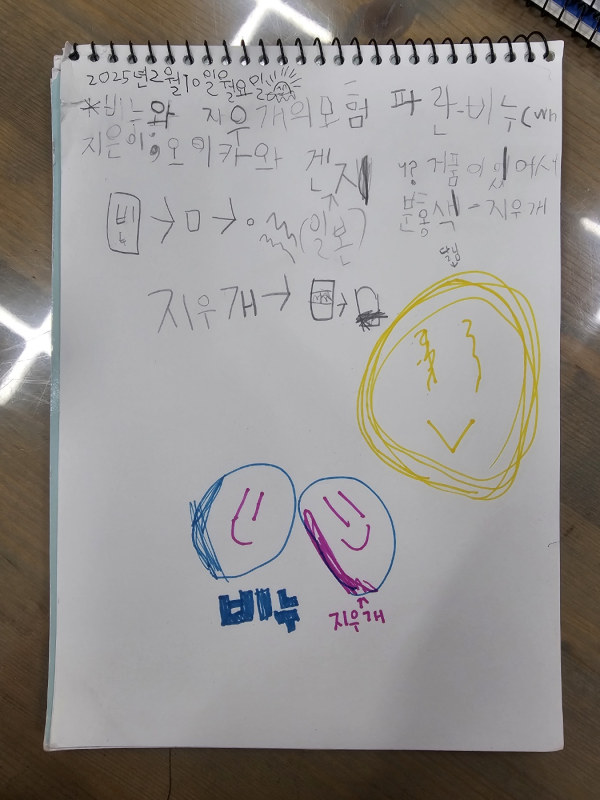 2025년 2월 10일 월요일
*비누와 지우개의 모험
지은이: 오이카와 겐지
파란-비누(wh
y? 거품이 있어서
분홍색-지우개
빈
(일본)
달님
지우개→
비누
지우개